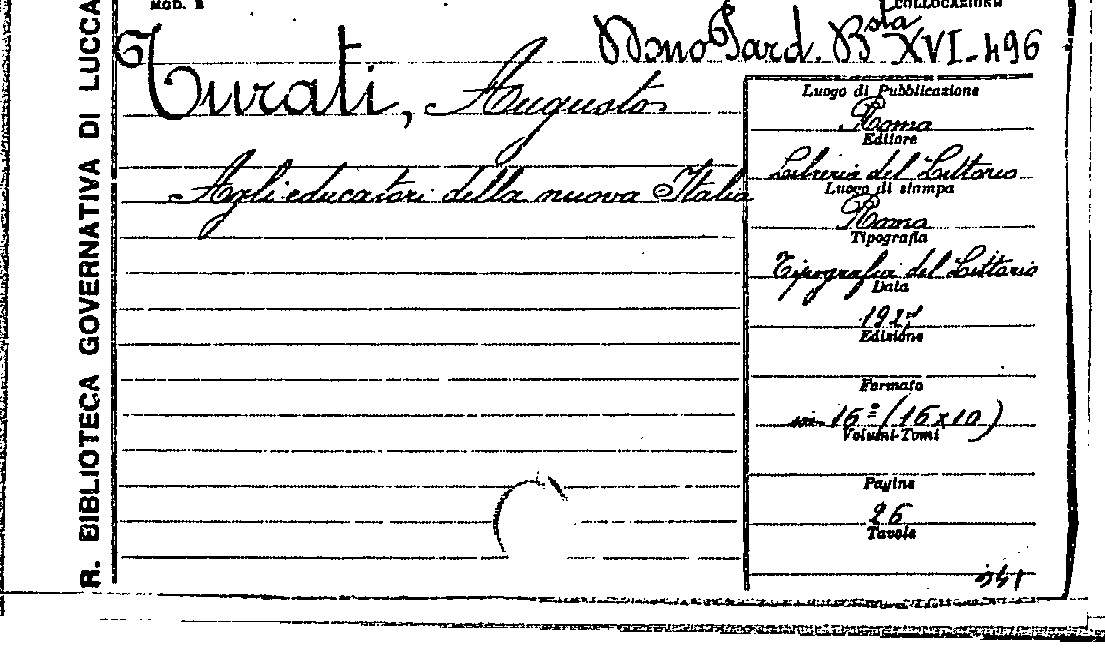 MOD. 2
COLLOCAZIONE
R. BIBLIOTECA GOVERNATIVA DI LUCCA
Bsta XVI-496
Turati, Augusto
Agli educatori della nuova Italia
Luogo di Pubblicazione
Roma
Editore
Libreria del Littorio
Luogo di stampa
Roma
Tipografia
Tipografia del Littorio
Data
1927
Edizione
Formato
in 16º (16x10)
Volumi-Tomi
Pagine
26
Tavole